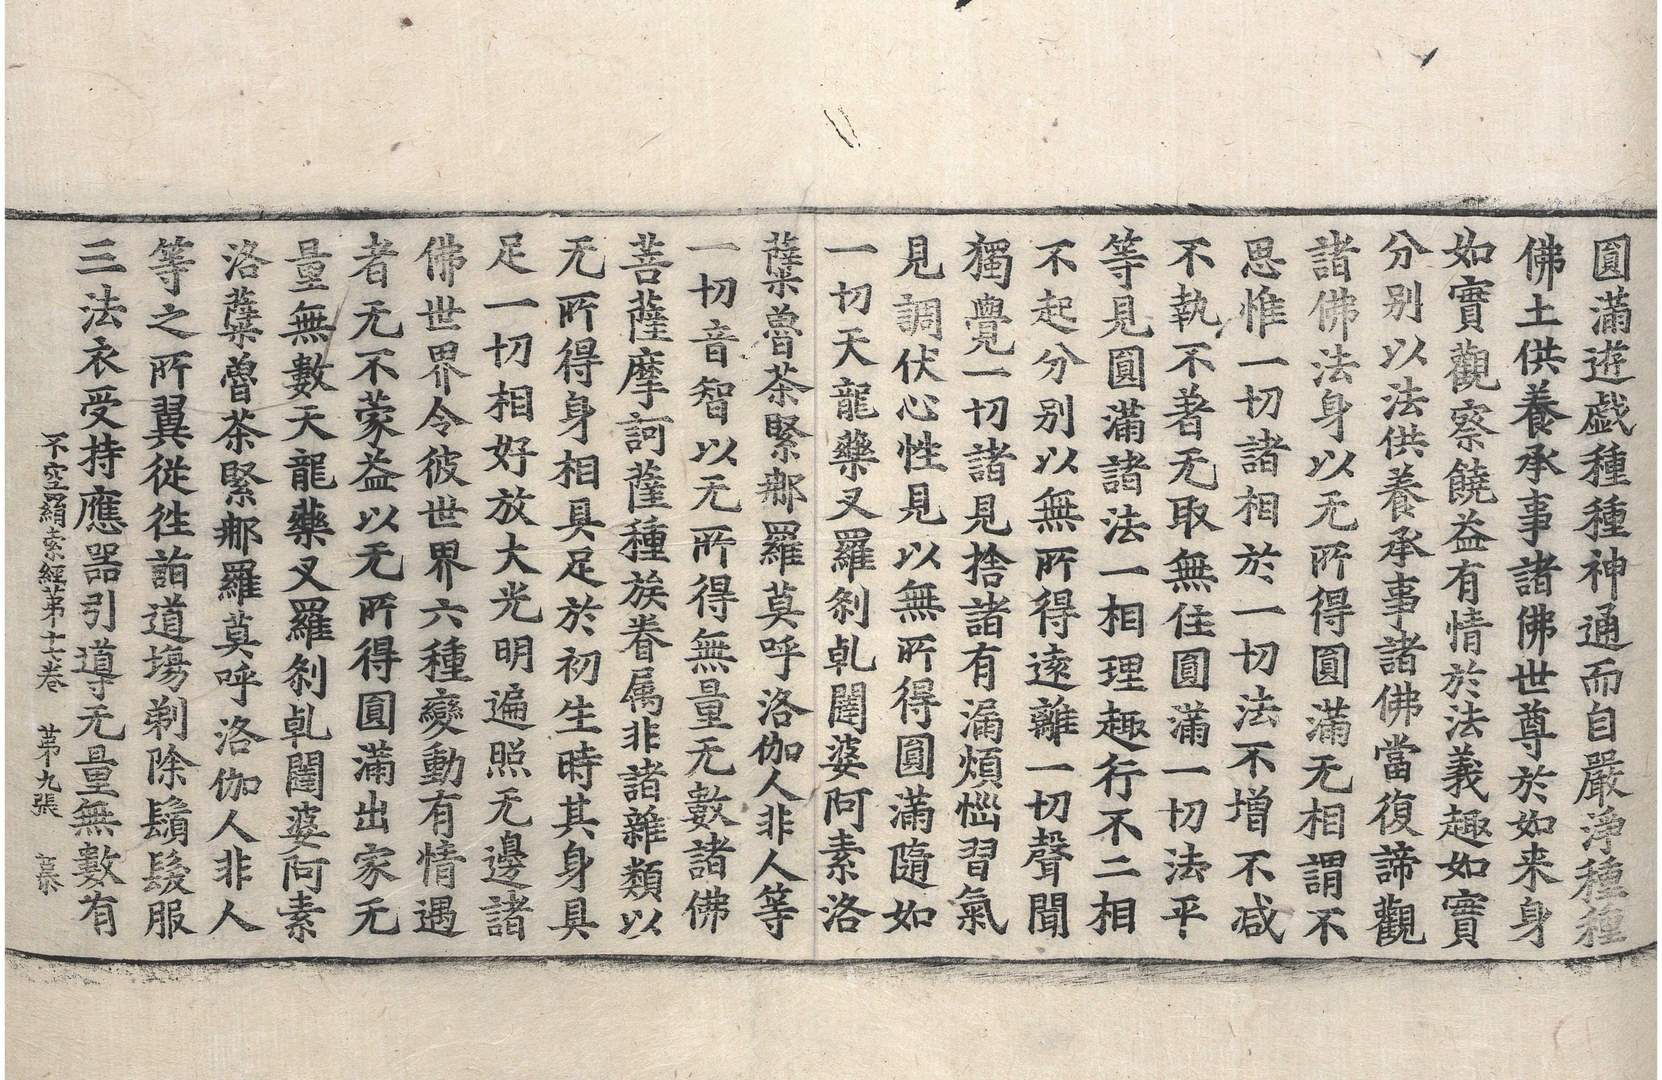 圓滿遊戲種種神通而自嚴淨種種
佛土供養承事諸佛世尊於如来身
如實觀察饒益有情於法義趣如實
分别以法供養承事諸佛當復諦觀
諸佛法身以无所得圓滿无相謂不
思惟一切諸相於一切法不增不減
不執不著无取無住圓滿一切法平
等見圓滿諸法一相理趣行不二相
不起分别以無所得遠離一切聲聞
獨覺一切諸見捨諸有漏煩惱習氣
見調伏心性見以無所得圓滿隨如
一切天龍藥叉羅剎乹闥婆阿素洛
蘖魯荼緊那羅莫呼洛伽人非人等
一切音智以无所得無量无數諸佛
菩薩摩訶薩種族眷属非諸雜類以
无所得身相具足於初生時其身具
足一切相好放大光明遍照无邊諸
佛世界令彼世界六種變動有情遇
者无不蒙益以无所得圓滿出家无
量無數天龍藥叉羅剎乹闥婆阿素
洛蘖魯荼緊那羅莫呼洛伽人非人
等之所翼從徃詣道場剃除鬚髮服
三法衣受持應器引導无量無數有
不空羂索經苐十七卷 苐九張 慕